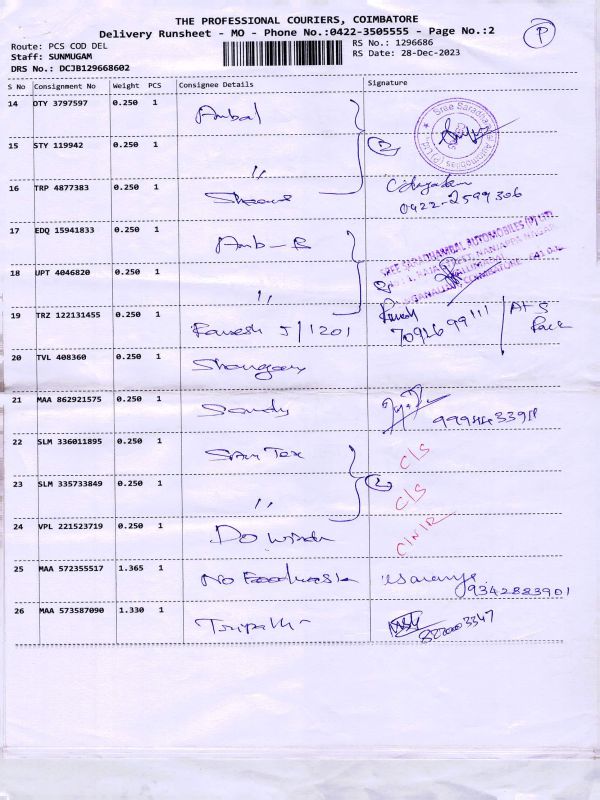 THE PROFESSIONAL COURIERS, COIMBATORE
Delivery Runsheet - MO - Phone No.:0422-3505555 - Page No.:2
P
Route: PCS COD DEL
RS No.: 1296686
Staff: SUNMUGAM
RS Date: 28-Dec-2023
DRS No.: DCJB129668602
S No Consignment No Weight PCS Consignee Details Signature
14 OTY 3797597 0.250 1 Ambal
15 STY 119942 0.250 1 〃 2
16 TRP 4877383 0.250 1
0422-2599306
17 EDQ 15941833 0.250 1 Amb-B
SREE SARADHAMBAL AUTOMOBILES (P) LTD
18 UPT 4046820 0.250 1 〃
19 TRZ 122131455 0.250 1 Ramesh J/1201 Ramesh
20 TVL 408360 0.250 1
21 MAA 862921575 0.250 1 Sandy
22 SLM 336011895 0.250 1 Sam Tex C/S
23 SLM 335733849 0.250 1 〃 2 C/S
24 VPL 221523719 0.250 1 Do
25 MAA 572355517 1.365 1 No Food
9342883901
26 MAA 573587090 1.330 1